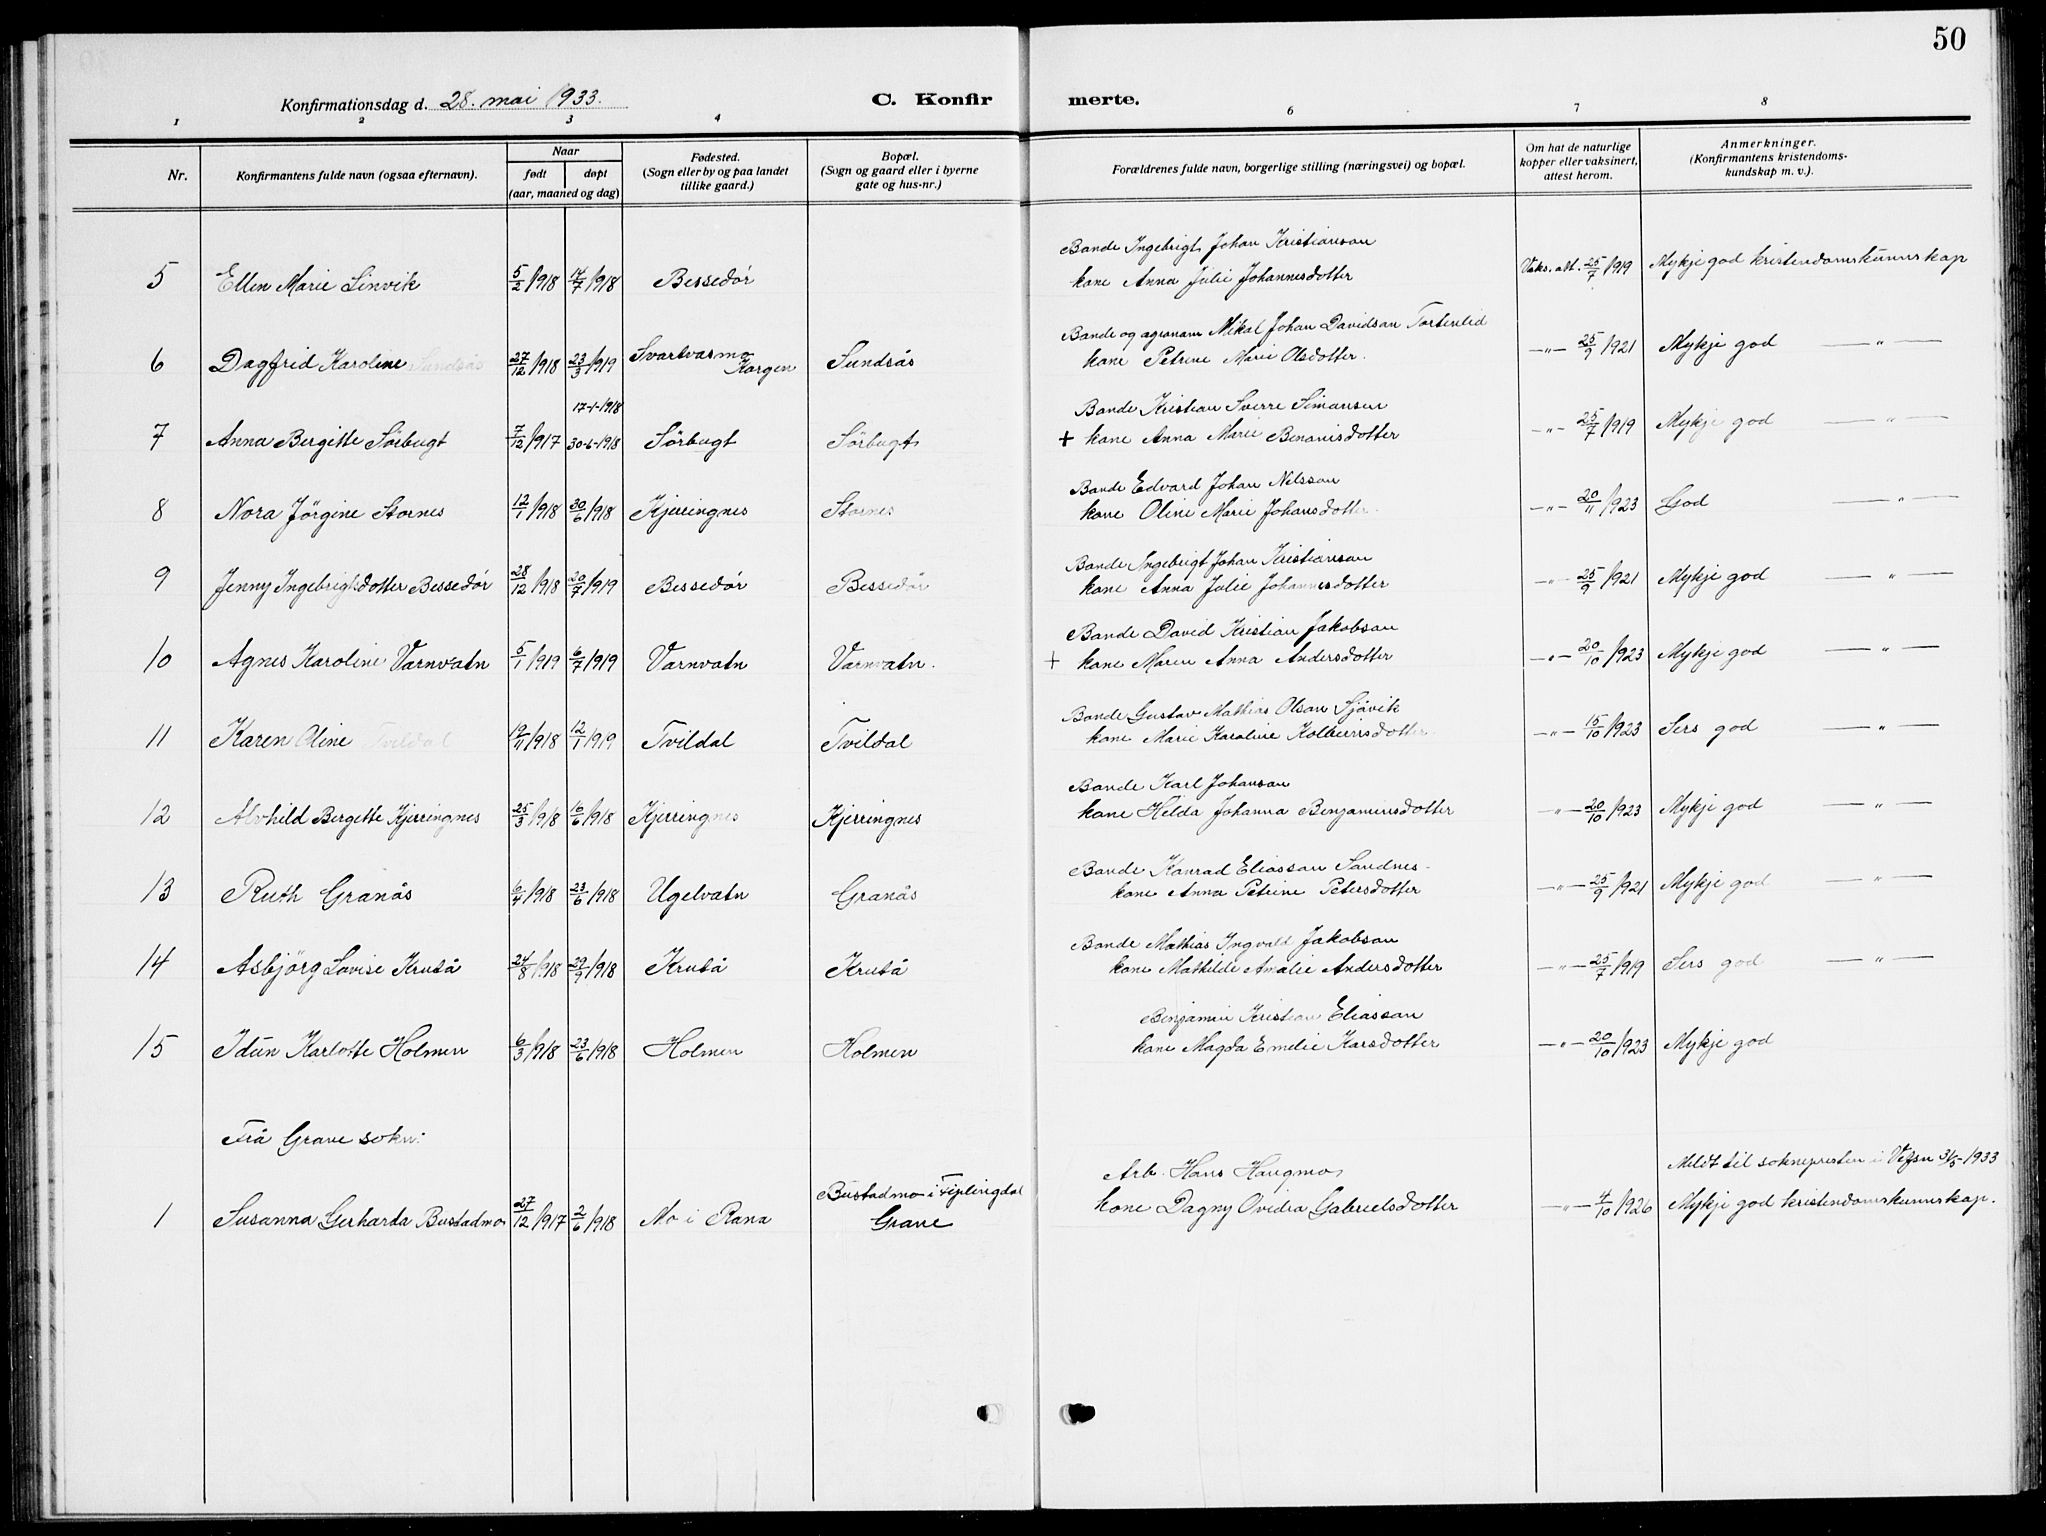 50
Konfirmationsdag d. 28. mai 1933.
C. Konfirmerte.
1 2 3 4 6 7 8
Nr.
Konfirmantens fulde navn (ogsaa efternavn).
Naar
født døpt
(aar, maaned og dag)
Fødested.
(Sogn eller by og paa landet
tillike gaard.)
Bopæl.
(Sogn og gaard eller i byerne
gate og hus-nr.)
Forældrenes fulde navn, borgerlige stilling (næringsvei) og bopæl.
Om hat de naturlige
kopper eller vaksinert,
attest herom.
Anmerkninger.
(Konfirmantens kristendoms-
kundskap m. v.).
Bonde Ingebrigt Johan Kristianson
5 Ellen Marie Linvik 5/2 1918 14/7 1918 Bessedör kone Anna Julie Johannesdotter Vaks. att. 25/7 1919 Mykje god kristendomskunnskap
Bonde og agronom Mikal Johan Davidson Tortenlid
6 Dagfrid Karoline Sundsås 27/12 1918 23/3 1919 Svartvasmo Korgen Sundsås kone Petrine Marie Olsdotter. —"— 25/9 1921 Mykje god —"—
17-1-1918 Bonde Kristian Sverre Simonsen
7 Anna Bergitte Sörbugt 7/12 1917 30-6-1918 Sörbugt Sörbugt + kone Anna Marie Benonisdotter —"— 25/7 1919 Mykje god —"—
Bonde Edvard Johan Nilsson
8 Nora Jörgine Stornes 12/1 1918 30/6 1918 Kjerringnes Stornes kone Oline Marie Johansdotter. —"— 20/11 1923 God —"—
Bonde Ingebrigt Johan Kristianson
9 Jenny Ingebrigtsdotter Bessedör 28/12 1918 20/7 1919 Bessedör Bessedör kone Anna Julie Johannesdotter —"— 25/9 1921 Mykje god —"—
Bonde David Kristian Jakobson
10 Agnes Karoline Varnvatn 5/1 1919 6/7 1919 Varnvatn Varnvatn. + kone Maren Anna Andersdotter —"— 20/10 1923 Mykje god —"—
Bonde Gustav Mathias Olson Sjåvik
11 Karen Oline Tvildal 19/11 1918 12/1 1919 Tvildal Tvildal kone Marie Karoline Kolbeinsdotter. —"— 15/10 1923 Sers god —"—
Bonde Karl Johanson
12 Alvhild Bergette Kjerringnes 25/3 1918 16/6 1918 Kjerringnes Kjerringnes kone Hilda Johanna Benjaminsdotter —"— 20/10 1923 Mykje god —"—
Bonde Konrad Eliasson Sandnes.
13 Ruth Granås 6/4 1918 23/6 1918 Ugelvatn Granås kone Anna Petrine Petersdotter —"— 25/9 1921 Mykje god —"—
Bonde Mathias Ingvald Jakobson
14 Asbjörg Lovise Krutå 24/8 1918 29/9 1918 Krutå Krutå kone Mathilde Amalie Andersdotter —"— 25/7 1919 Sers god —"—
Benjamin Kristian Eliasson
15 Idun Karlotte Holmen 6/3 1918 23/6 1918 Holmen Holmen kone Magda Emelie Larsdotter —"— 20/10 1923 Mykje god
Frå Grane sokn:
Arb. Hans Haugmo Meldt til soknepresten i Vefsn 31/5-1933
1 Susanna Gerharda Bustadmo 27/12 1917 2/6 1918 Mo i Rana Bustadmo i Fiplingdal Grane kone Dagny Ovidia Gabrielsdotter —"— 4/10 1926 Mykje god kristendomskunnskap.